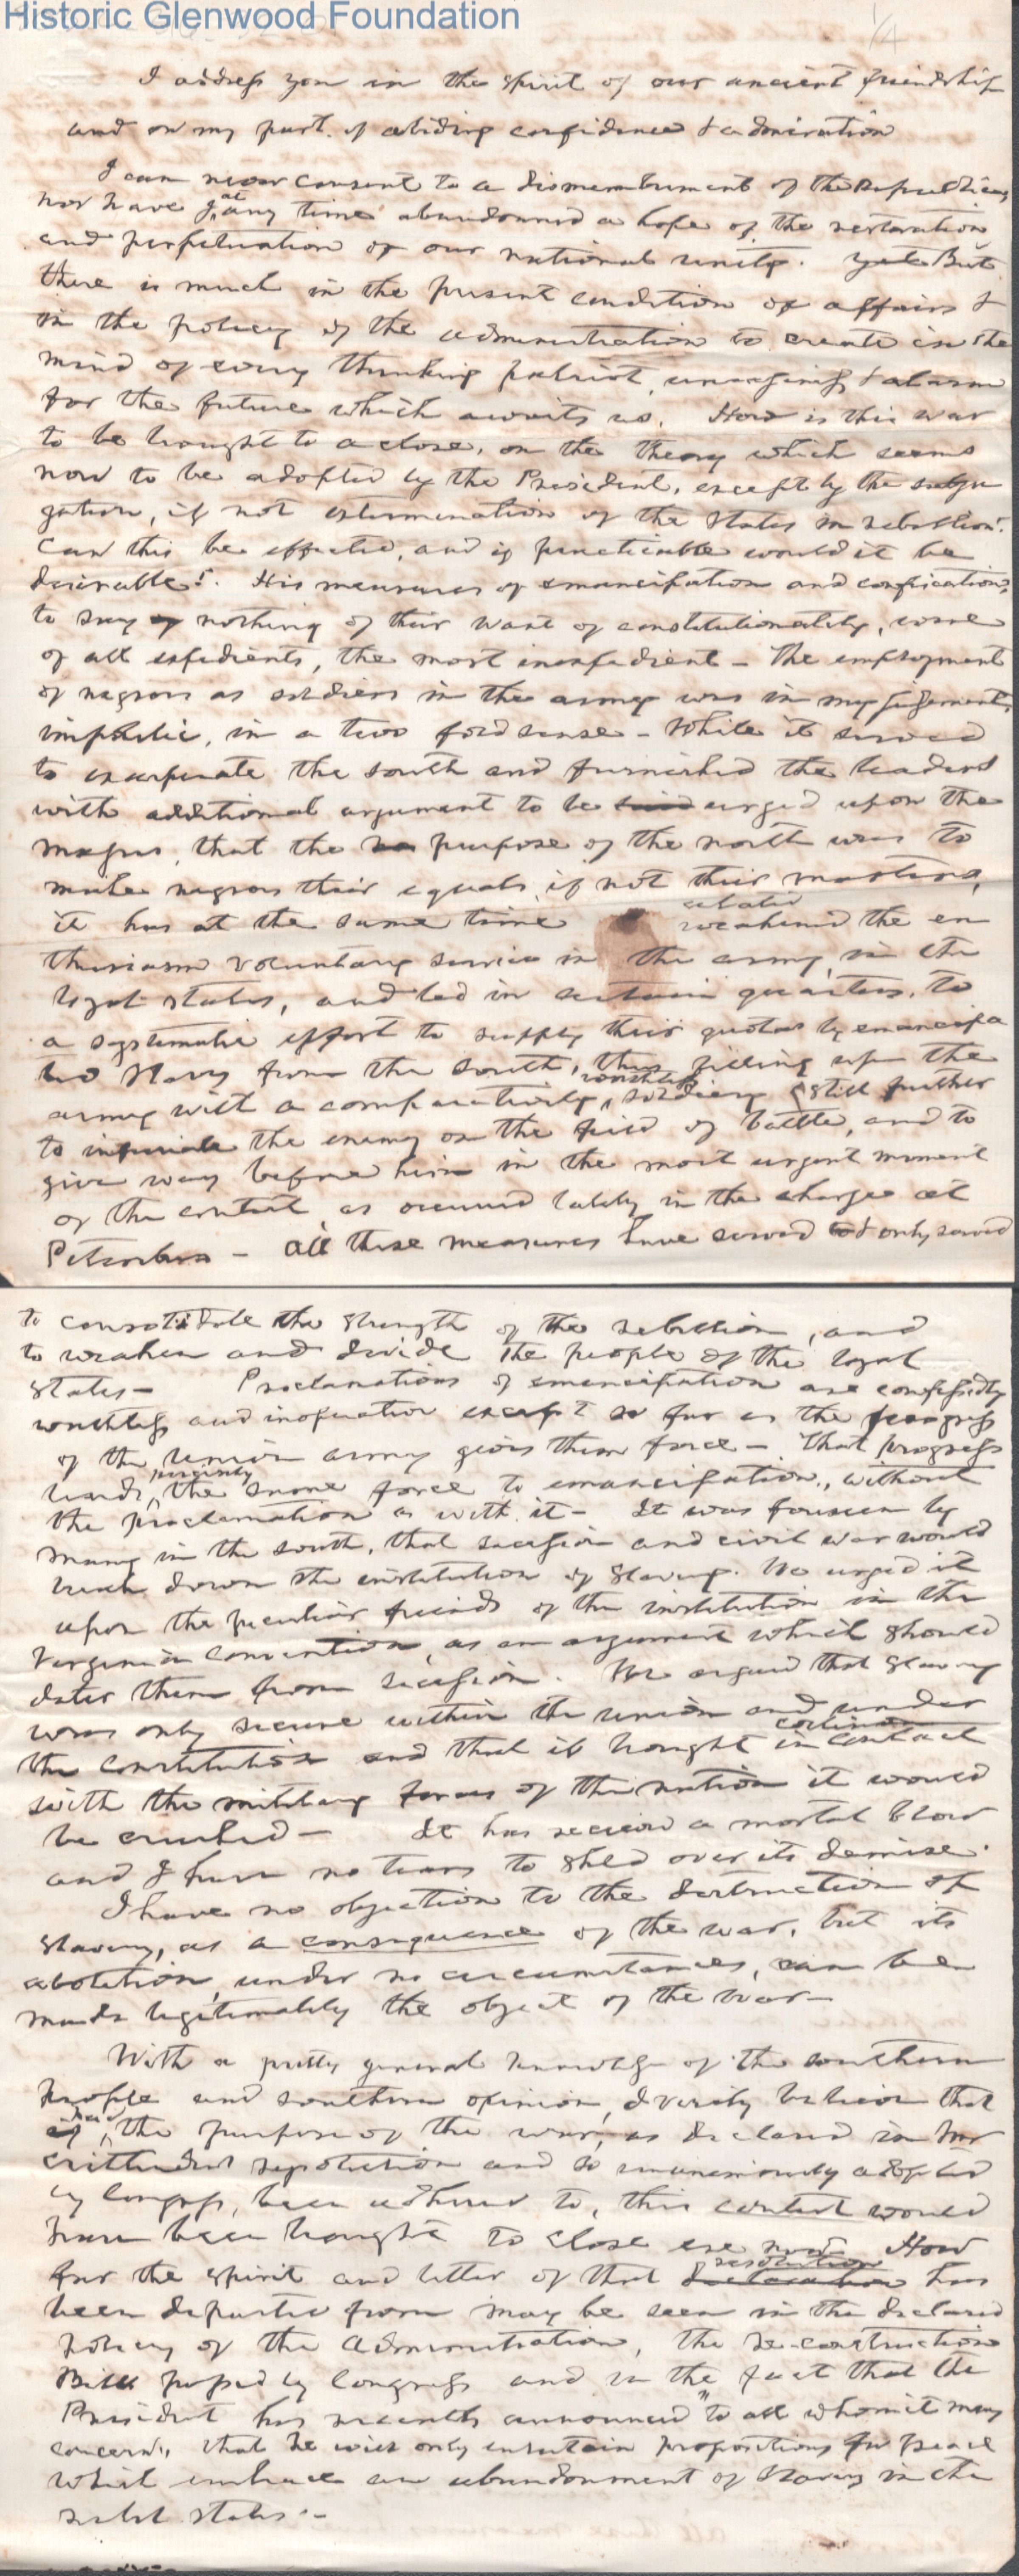 Historic Glenwood Foundation
1/4
I address you in the spirit of our ancient friendship
and on my part, of abiding confidence & admiration
I can never consent to a dismemberment of the Republic,
nor have I at any time abandoned a hope of the restoration
and perpetuation of our national unity. yet But
there is much in the present condition of affairs &
in the policy of the administration to create in the
mind of every thinking patriot, uneasiness & alarm
for the future which awaits us. How is this war
to be brought to a close, on the theory which seems
now to be adopted by the President, except by the subju
gation, if not extermination of the States in rebellion?
Can this be effected, and if practicable would it be
desirable? His measures of emancipation and confiscation,
to say of nothing of their want of constitutionality, were
of all expedients, the most inexpedient - The employment
of negroes as soldiers in the army was in my judgement,
impolitic, in a two fold sense - While it served
to exasperate the south and furnished the leaders
with additional argument to be urged upon the
masses, that the purpose of the north was to
make negroes their equals, if not their masters,
it has at the same time abated weakened the en
thusiasm voluntary service in the army, in the
loyal states, and led in certain quarters, to
a systematic effort to supply their quotas by emancipa
ted slaves from the South, thus filling up the
army with a comparatively worthless soldiery still further
to infuriate the enemy on the field of battle, and to
give way before him in the most urgent moment
of the contest as occurred lately in the charge at
Petersburg - All these measures have served & only served
to consolidate the strength of the rebellion, and
to weaken and divide the people of the loyal
States - Proclamations of emancipation are confessedly
worthless and inoperative except so far as the progress
of the Union army gives them force - That progress
lends precisely the same force to emancipation, without
the proclamation as with it - It was foreseen by
many in the south, that secession and civil war would
break down the institution of Slavery. We urged it
upon the peculiar friends of the institution in the
Virginia Convention, as an argument which should
deter them from secession. We argued that Slavery
was only secure within the union and under
the Constitution and that if brought in collision contact
with the military forces of the nation it would
be crushed - It has received a mortal blow
and I have no tears to shed over its demise.
I have no objection to the destruction of
Slavery, as a consequence of the war, but its
abolition, under no circumstances, can be
made legitimately the object of the war -
With a pretty general knowledge of the southern
people and southern opinion, I verily believe that
if had the purpose of the war, as declared in Mr
Crittendens resolution and so unanimously adopted
by Congress, been adhered to, this contest would
have been brought to close ere now. How
far the spirit and letter of that resolution declaration has
been departed from may be seen in the declared
policy of the Administration, the re-construction
Bill passed by Congress and in the fact that the
President has recently announced "to all whom it may
concern" that he will only entertain propositions for peace
which embrace an abandonment of Slavery in the
rebel states. -